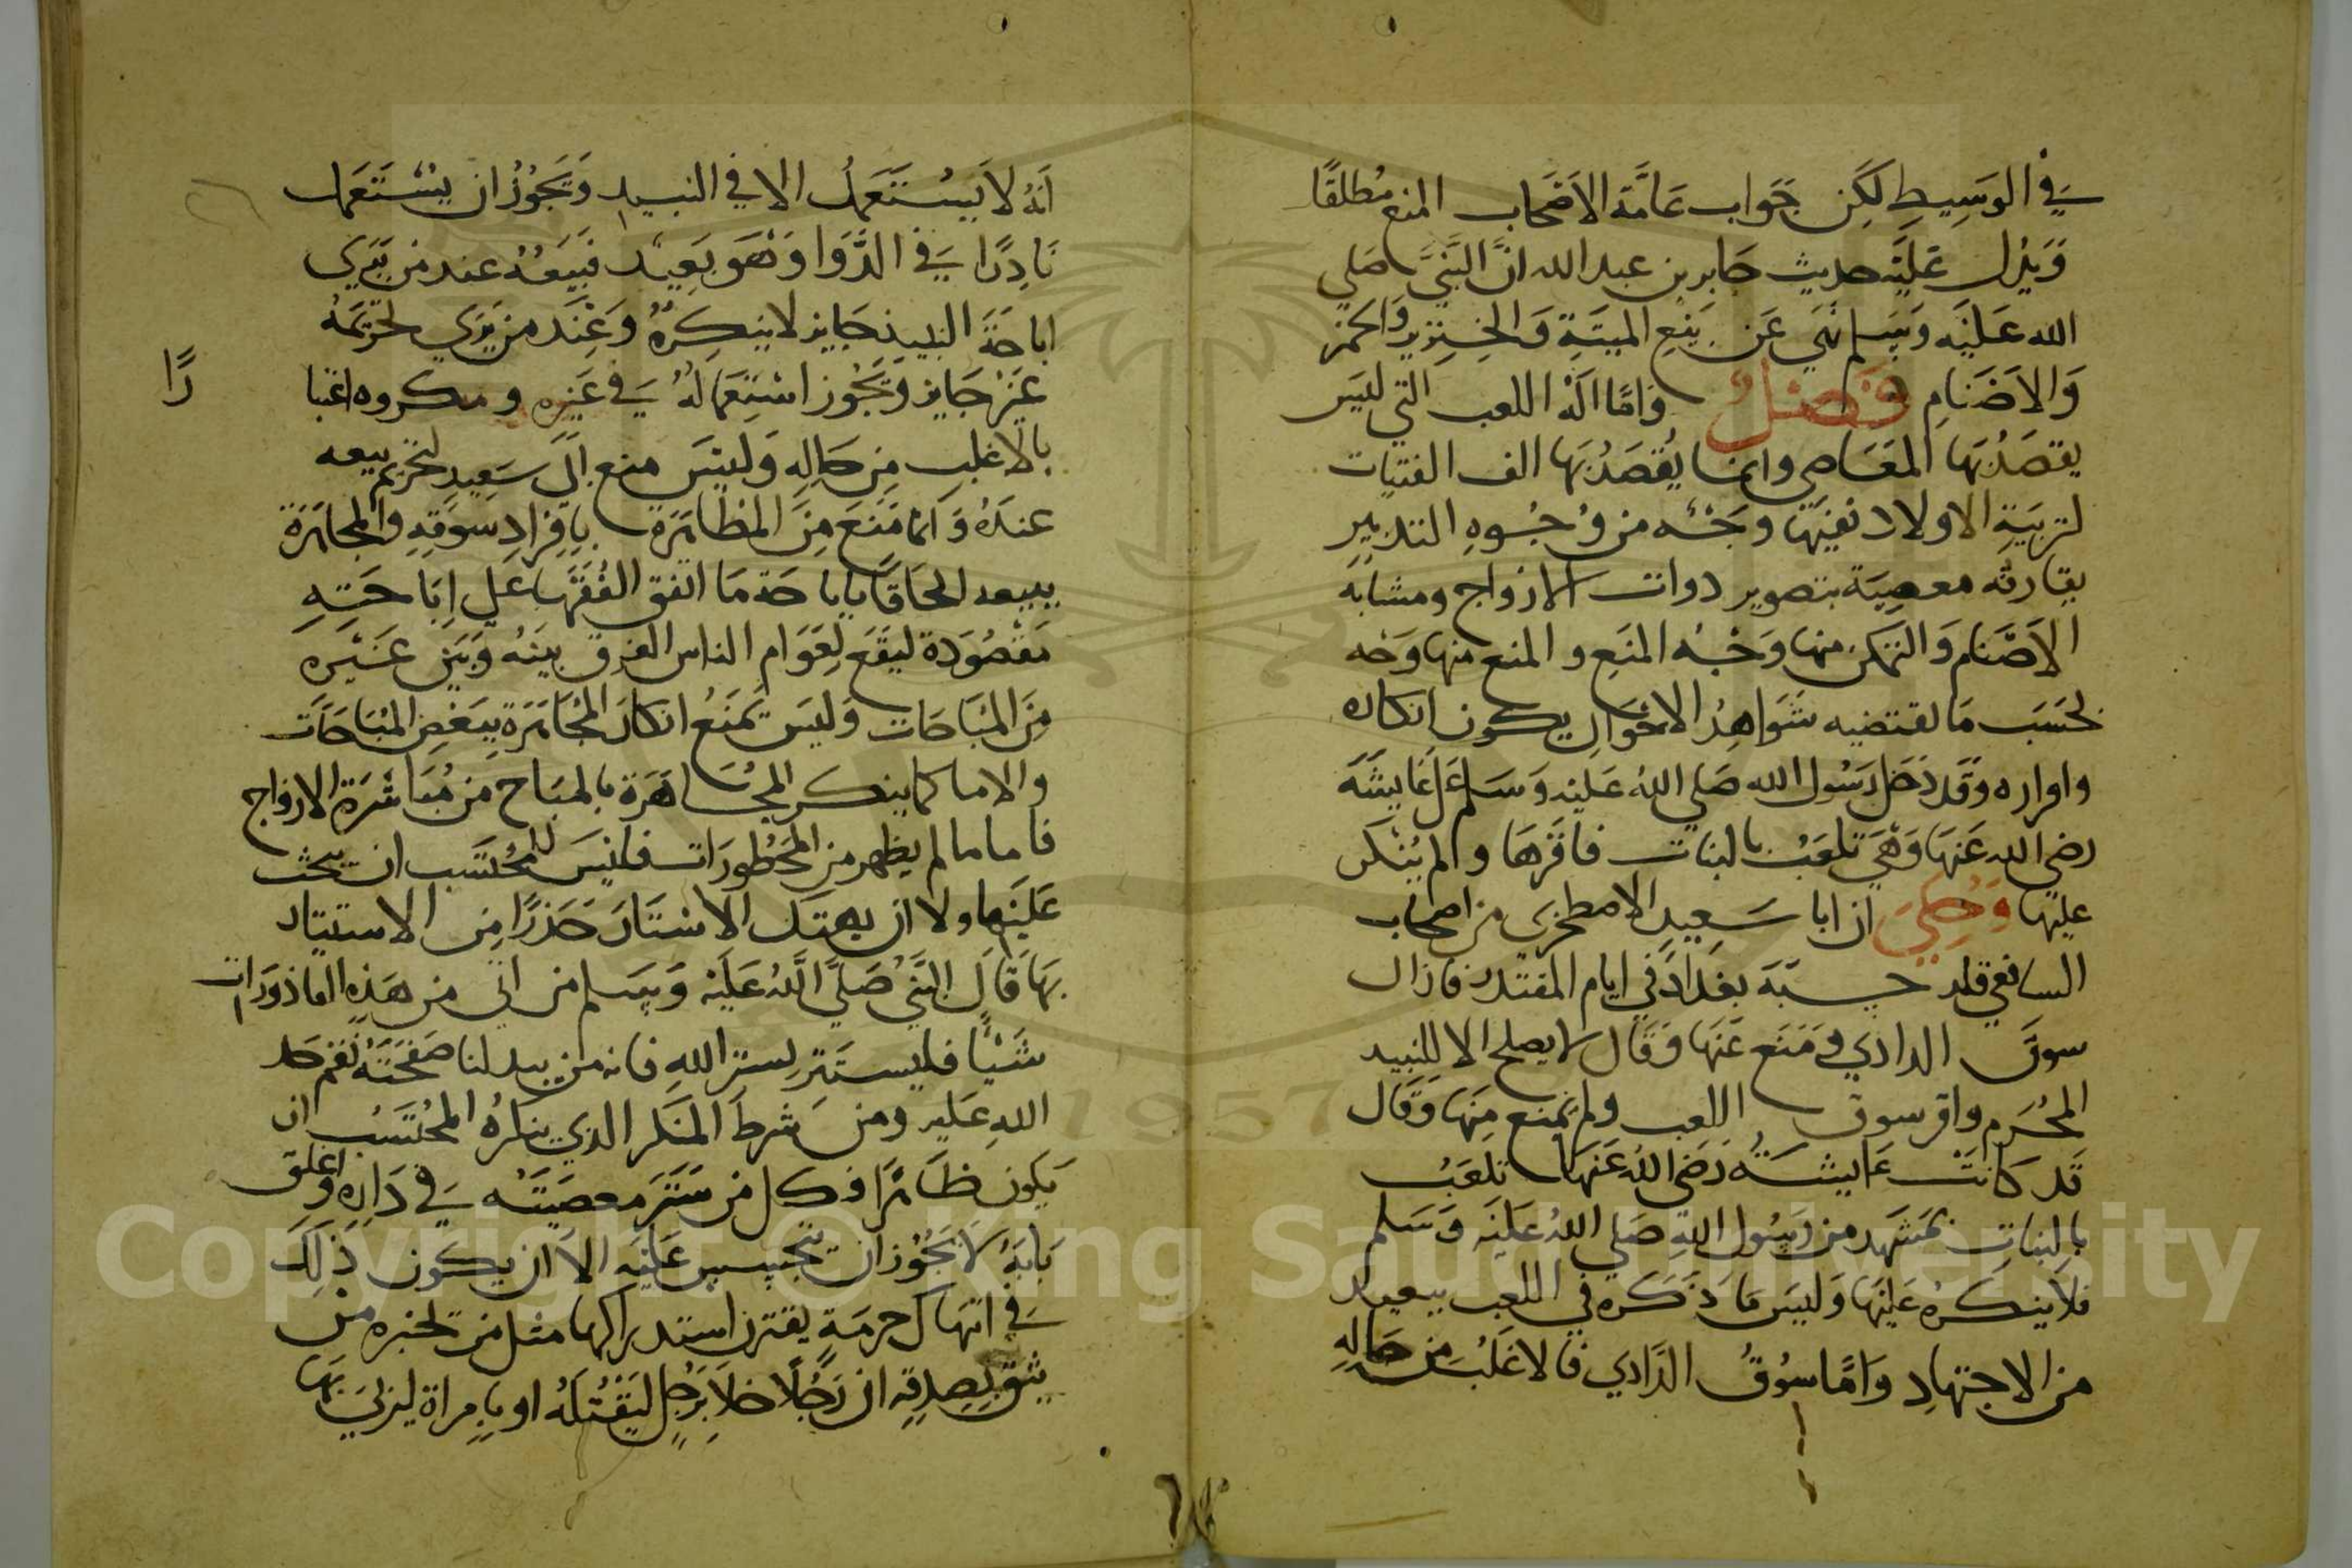 في الوسيط لكن جواب عامة الاصحاب المنع مطلقا
ويدل عليه حديث جابر بن عبد الله ان النبي صلي
الله عليه وسلم نهي عن بيع الميتة والخنزير والخمر
والاصنام فصل واما اله اللعب التي ليس
يقصد بها المعاصي وانما يقصد بها الف الفتيات
لتربية الاولاد ففيها وجه من وجوه التدبير
يقارنه معصية بتصوير دوات الارواح ومشابه
الاصنام والتمكن منها وجه المنع و المنع منها وجه
بحسب ما تقتضيه شواهد الاحوال يكون انكاره
واقراره وقد دخل رسول الله صلي الله عليه وسلم علي عايشه
رضي الله عنها وهي تلعب بالبنات فاقرها ولم ينكر
عليها وحكي ان ابا سعيد الاصطخري من اصحاب
الشافعي قلد حسبة بغداد في ايام المقتدر فازال
سوق الدادي ومنع عنها وقال لا يصلح الا للنبيد
المحرم واقر سوق اللعب ولم يمنع منها وقال
قد كانت عايشه رضي الله عنها تلعب
بالبنات بمشهد من رسول الله صلي الله عليه وسلم
فلا ينكره عليها وليس ما ذكره في اللعب ببعيد
من الاجتهاد واما سوق الدادي فالاغلب من حاله
انه لا يستعمل الا في النبيد ويجوز ان يستعمل
نادرا في الدوا وهو بعيد فبيعه عند من يري
اباحة النبيذ جايز لا ينكره وعند من يري تحريمه
غير جايز ويجوز استعماله في غيره ومكروه اعتبا
را
بالاغلب من حاله وليس منع ابي سعيد لتحريم بيعه
عنده وانما منع من المظاهرة بافراد سوقه والمجاهرة
ببيعه الحاقا باباحة ما اتفق الفقها علي اباحته
مقصودة ليقع لعوام الناس الفرق بينه وبين غيره
من المباحات وليس يمنع انكار المجاهرة ببعض المباحات
والاما كما ينكر المجاهرة بالمباح من مباشرة الازواج
فاما ما لم يظهر من المحظورات فليس للمحتسب ان يبحث
عليها ولا ان يهتك الاستار حذرا من الاستتار
بها قال النبي صلي الله عليه وسلم من اتي من هذه القاذورات
شيئا فليستتر بستر الله فانه من يبد لنا صفحته نقم حد
الله عليه ومن شرط المنكر الذي ينكره المحتسب ان
يكون ظاهرا فكل من ستر معصيته في داره واغلق
بابه لا يجوز ان يتجسس عليه الا ان يكون ذلك
في انتهاك حرمة يقترن استدراكها مثل من تخبره من
يثق بصدقه ان رجلا خلا برجل ليقتله او بامراة ليزني بها
Copyright © King Saud University
1957